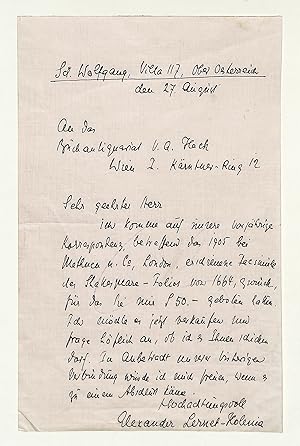 St. Wolfgang, Villa 117, Ober Österreich
den 27 August
An das
Buchantiquariat V. A. Heck
Wien I. Kärntner-Ring 12
Sehr geehrter Herr
ich komme auf unsere vorjährige
Korrespondenz, betreffend das 1905 bei
Methuen u. Co, London, erschienene Facsimile
der Shakespeare-Folios von 1664, zurück,
für das Sie mir $ 50.- geboten haben
Ich möchte es jetzt verkaufen und
frage höflich an, ob ich es Ihnen schicken
darf. In Anbetracht unserer bisherigen
Verbindung würde ich mich freuen, wenn es
zu einem Abschluß käme
Hochachtungsvoll
Alexander Lernet-Holenia